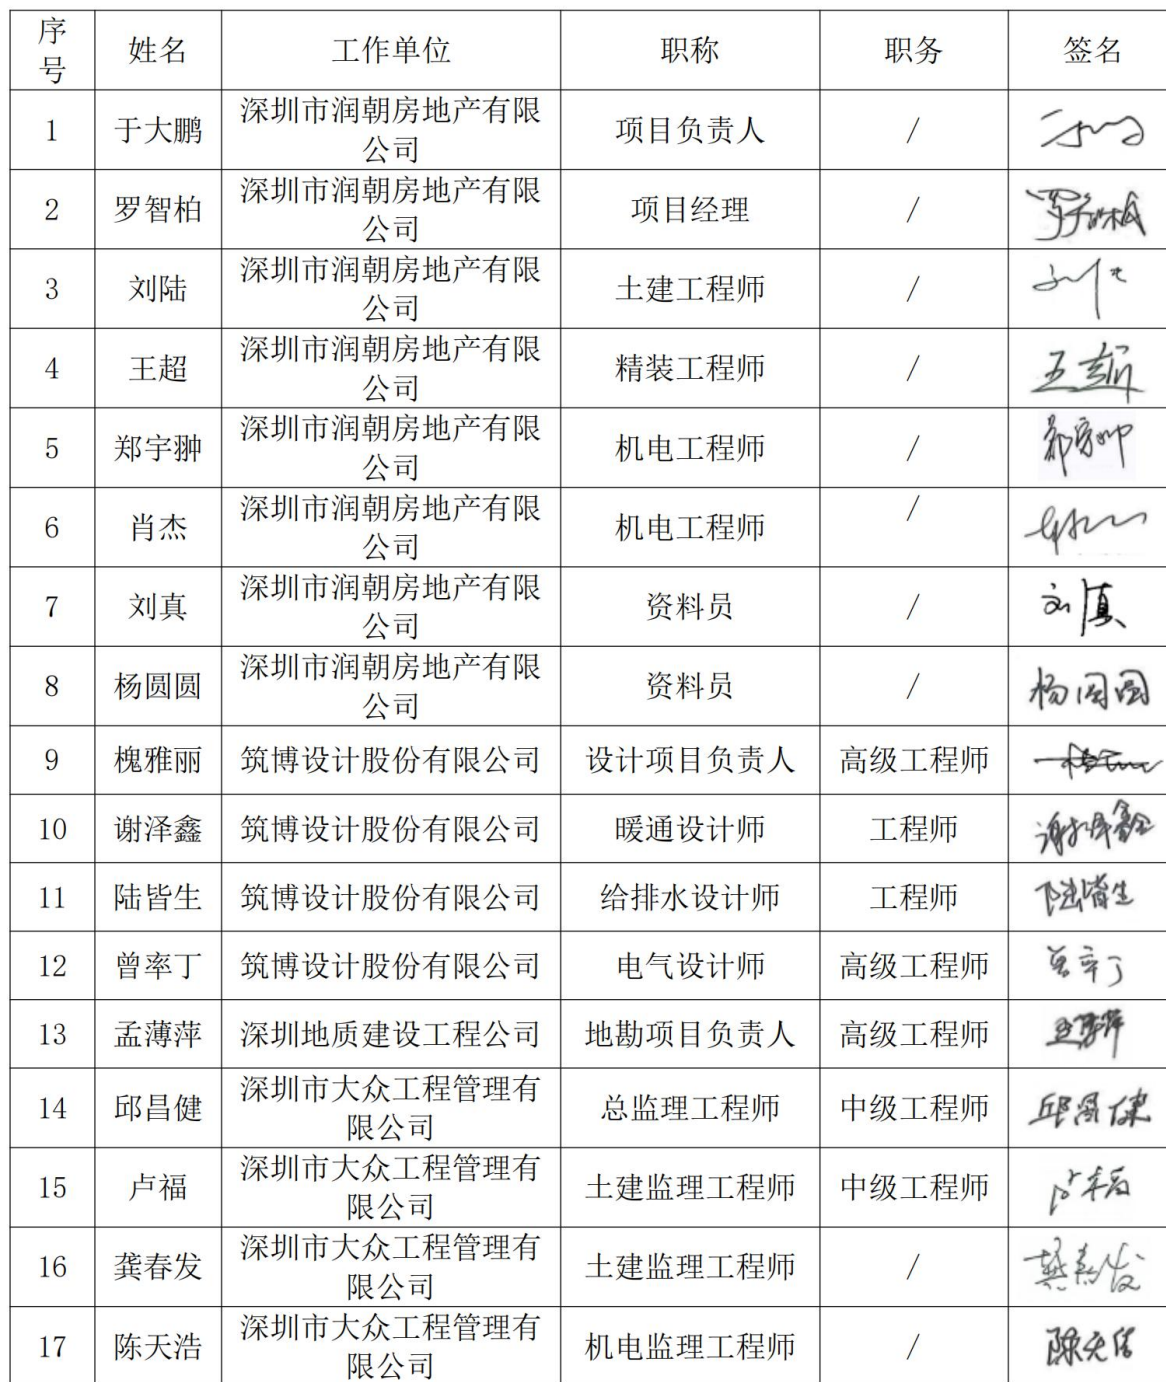 序号 姓名 工作单位 职称 职务 签名
1 于大鹏 深圳市润朝房地产有限公司 项目负责人 /
2 罗智柏 深圳市润朝房地产有限公司 项目经理 / 罗智柏
3 刘陆 深圳市润朝房地产有限公司 土建工程师 /
4 王超 深圳市润朝房地产有限公司 精装工程师 / 王超
5 郑宇翀 深圳市润朝房地产有限公司 机电工程师 /
6 肖杰 深圳市润朝房地产有限公司 机电工程师 /
7 刘真 深圳市润朝房地产有限公司 资料员 / 刘真
8 杨圆圆 深圳市润朝房地产有限公司 资料员 / 杨圆圆
9 槐雅丽 筑博设计股份有限公司 设计项目负责人 高级工程师
10 谢泽鑫 筑博设计股份有限公司 暖通设计师 工程师 谢泽鑫
11 陆皆生 筑博设计股份有限公司 给排水设计师 工程师 陆皆生
12 曾率丁 筑博设计股份有限公司 电气设计师 高级工程师 曾率丁
13 孟薄萍 深圳地质建设工程公司 地勘项目负责人 高级工程师 孟薄萍
14 邱昌健 深圳市大众工程管理有限公司 总监理工程师 中级工程师 邱昌健
15 卢福 深圳市大众工程管理有限公司 土建监理工程师 中级工程师 卢福
16 龚春发 深圳市大众工程管理有限公司 土建监理工程师 / 龚春发
17 陈天浩 深圳市大众工程管理有限公司 机电监理工程师 / 陈天浩